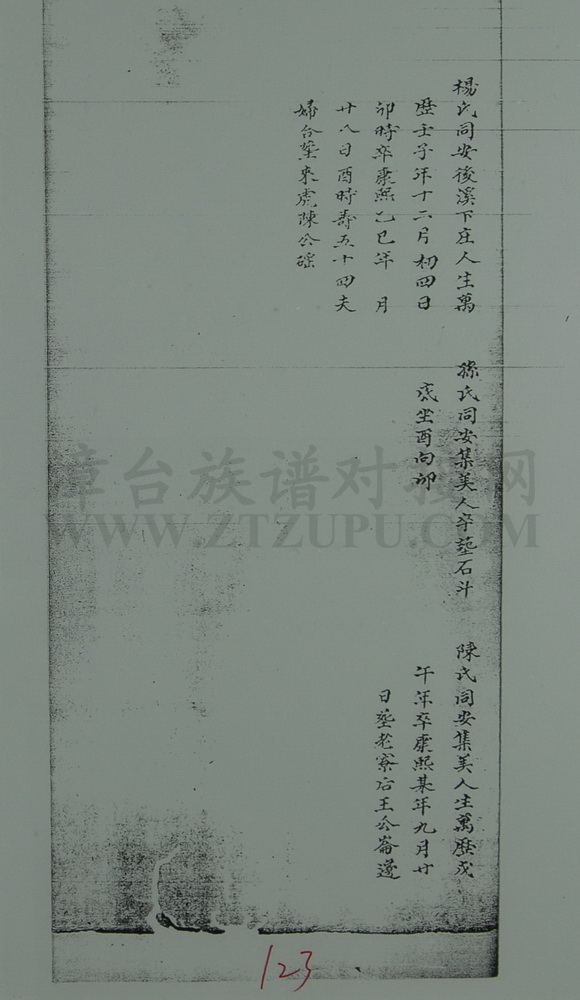 楊氏同安後溪下庄人生萬
歷壬子年十二月初四日
卯時卒康熙乙巳年 月
廿八日酉時壽五十四夫
婦合塟東虎陳公磘
孫氏同安集美人卒塟石斗
底坐酉向卯
陳氏同安集美人生萬歷戊
午年卒康熙某年九月廿
日塟老寮后王公崙邊
漳台族谱对接网
WWW.ZTZUPU.COM
123